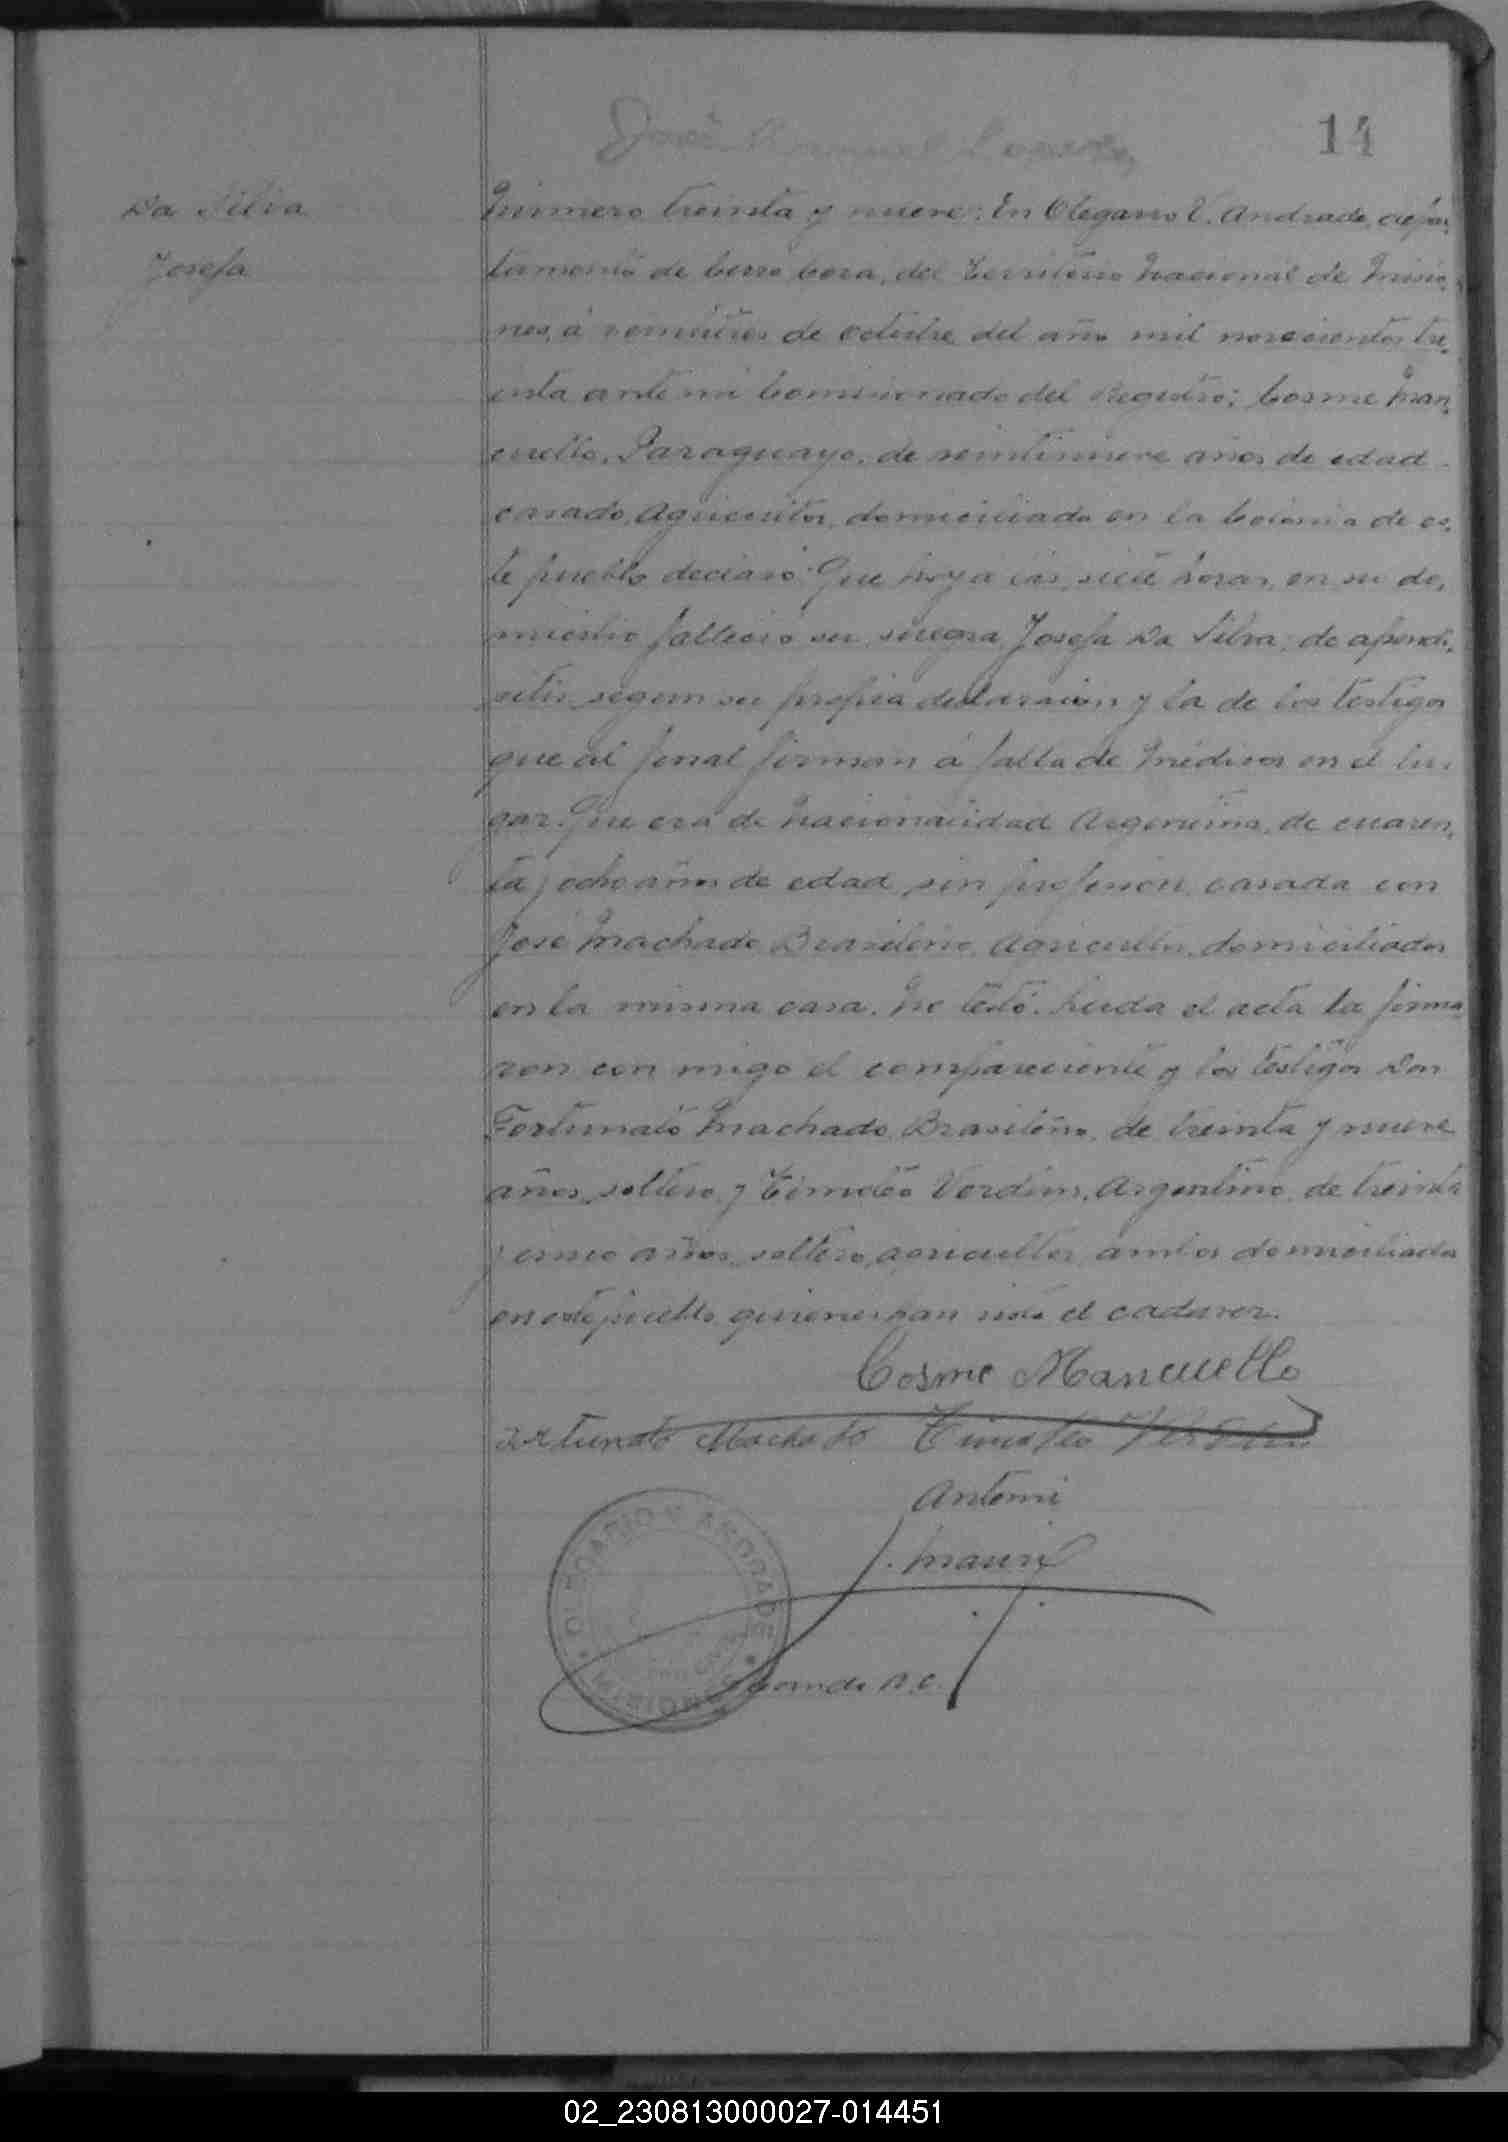 José Manuel
14
Da Silva
Josefa
Número treinta y nueve: En Olegario V. Andrade, depar-
tamento de Cerro Cora, del Territorio Nacional de Misio-
nes, á veintitres de octubre del año mil novecientos tre-
inta ante mi Comisionado del Registro; Cosme Man-
cuello, Paraguayo, de veintinueve años de edad
casado, Agricultor, domiciliado en la Colonia de es-
te pueblo declaró: Que hoy a las siete horas en su do-
micilio falleció su suegra Josefa Da Silva; de apendi-
sitis segun su propia declaracion y la de los testigos
que al final firman á falta de Médicos en el lu-
gar. Que era de Nacionalidad Argentina, de cuaren-
ta y ocho años de edad, sin profesion, casada con
José Machado Brasilero, Agricultor, domiciliados
en la misma casa. No testó. Leida el acta la firma-
ron con migo el compareciente y los testigos Don
Fortunato Machado, Brasileño, de treinta y nueve
años, soltero, y Timoteo Verdun, Argentino, de treinta
y cinco años, soltero, agricultor, ambos domiciliados
en este pueblo quienes han visto el cadaver.
Cosme Mancuello
Fortunato Machado Timoteo Verdun
Ante mi
J. Mauri
R. C.
OLEGARIO V ANDRADE
MISIONES
02_230813000027-014451